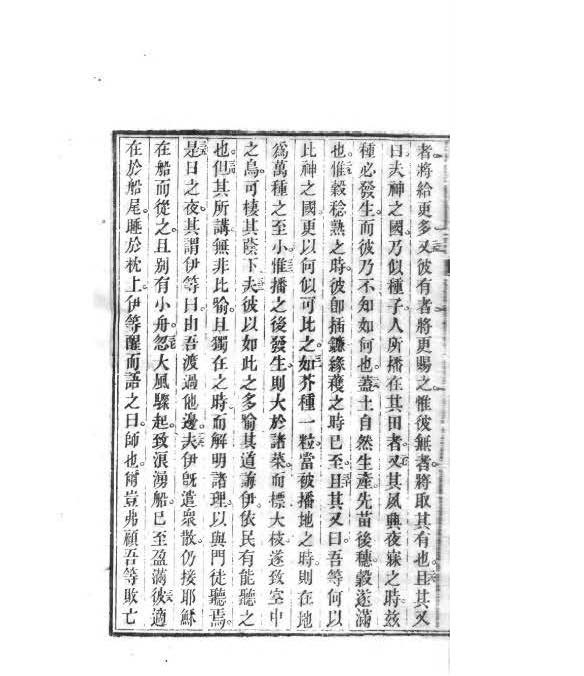 者將給更多又彼有者將更賜之惟彼無者將取其有也且其又
曰夫神之國乃似種子人所播在其田者又其夙興夜寐之時玆
種必發生而彼乃不知如何也蓋土自然生產先苗後穗穀遂滿
也惟穀稔熟之時彼卽插鐮緣穫之時已至且其又曰吾等何以
此神之國更以何似可比之如芥種一粒當被播地之時則在地
爲萬種之至小惟播之後發生則大於諸菜而標大枝遂致空中
之鳥可棲其蔭下夫彼以如此之多喻其道誨伊依民有能聽之
也但其所講無非比喻且獨在之時而解明諸理以與門徒聽焉
是日之夜其謂伊等曰由吾渡過他邊夫伊旣遣衆散仍接耶穌
在船而從之且別有小舟忽大風驟起致浪湧船已至盈滿彼適
在於船尾睡於枕上伊等醒而語之曰師也爾豈弗顧吾等敗亡